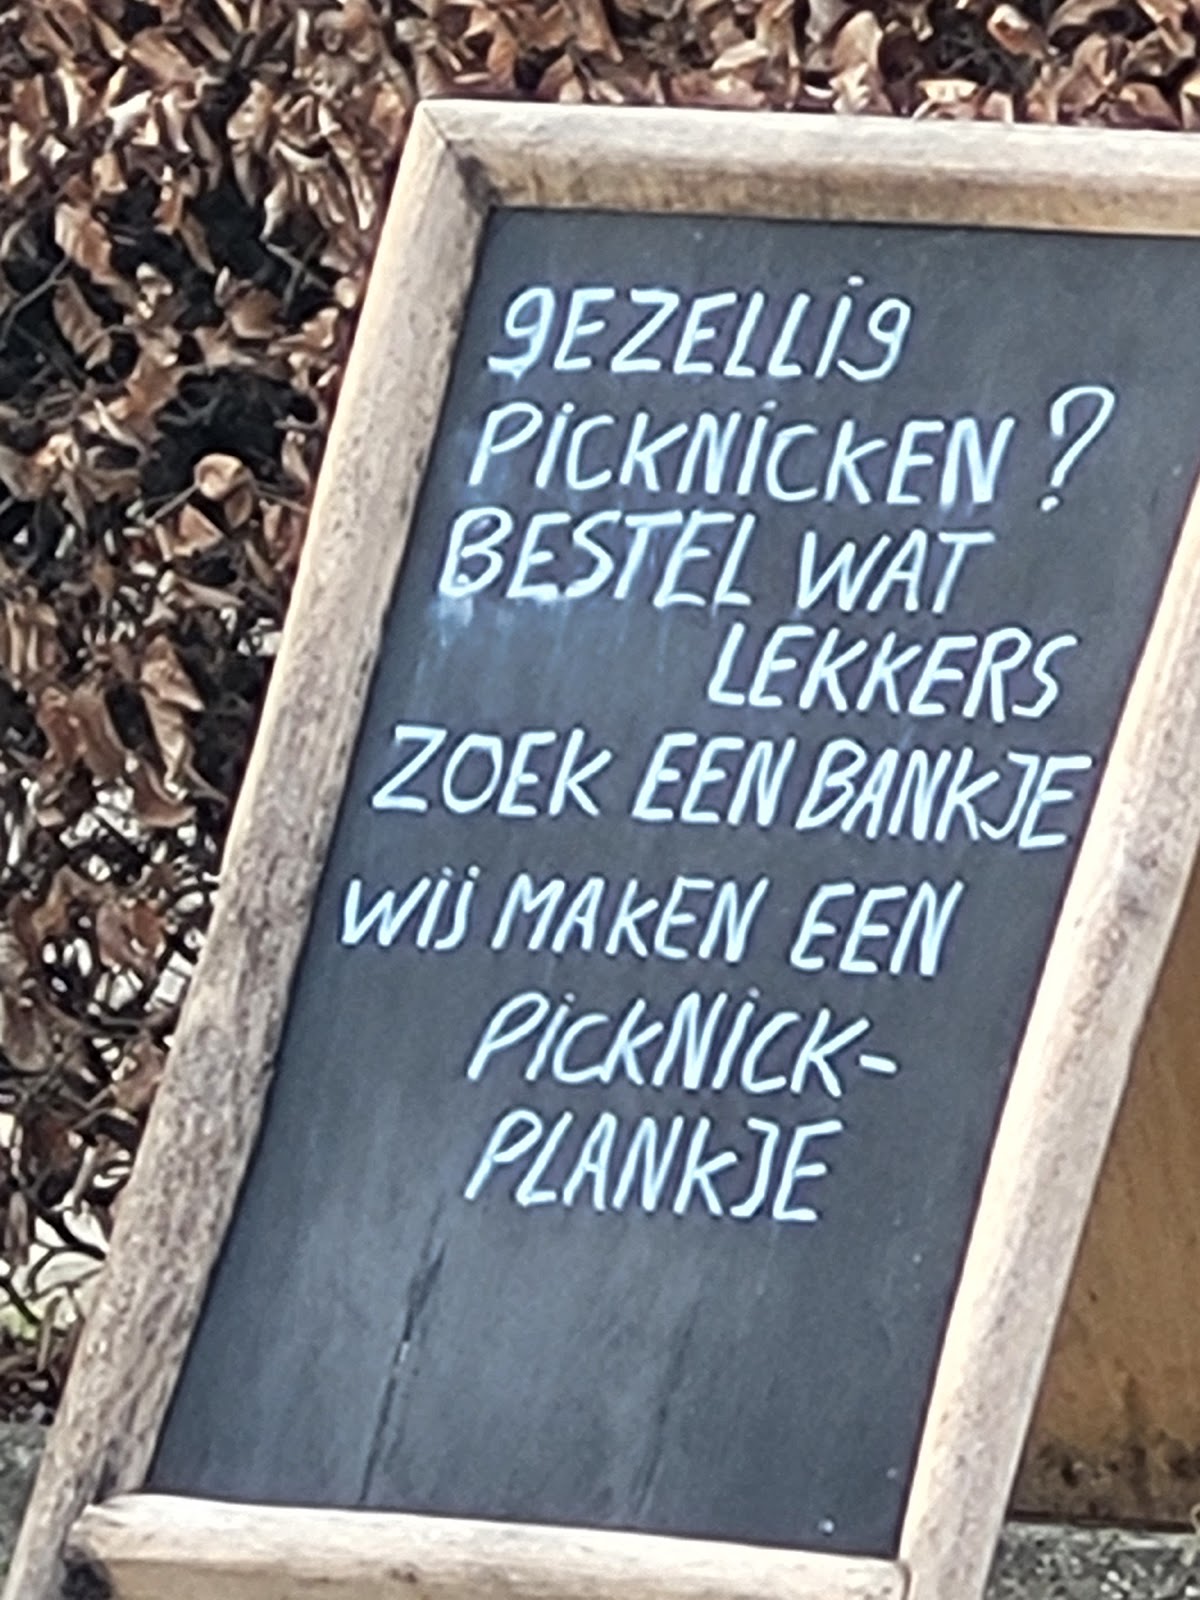 gEZELLig
PiCKNiCKEN?
BESTEL WAT
LEKKERS
ZOEK EEN BANKJE
Wij MAKEN EEN
PiCKNiCK-
PLANKJE